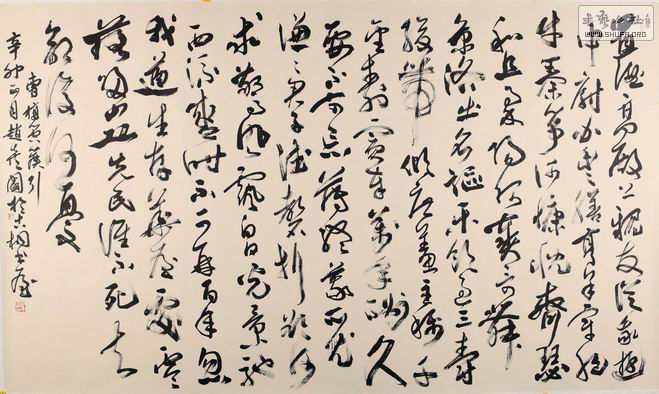 置酒高殿上親友從我遊
中廚办豐膳烹羊宰肥
牛秦筝何慷慨齊瑟
和且柔陽阿奏奇舞
京洛出名謳樂飲過三爵
緩帶傾庶羞主稱千
金壽賓奉萬年酬久
要不可忘薄終義所尤
謙謙君子德磬折欲何
求驚風飄白日光景馳
西流盛時不可再百年忽
我遒生存華屋處零
落歸山丘先民誰不死知
命復何憂
曹植箜篌引
辛卯正月趙